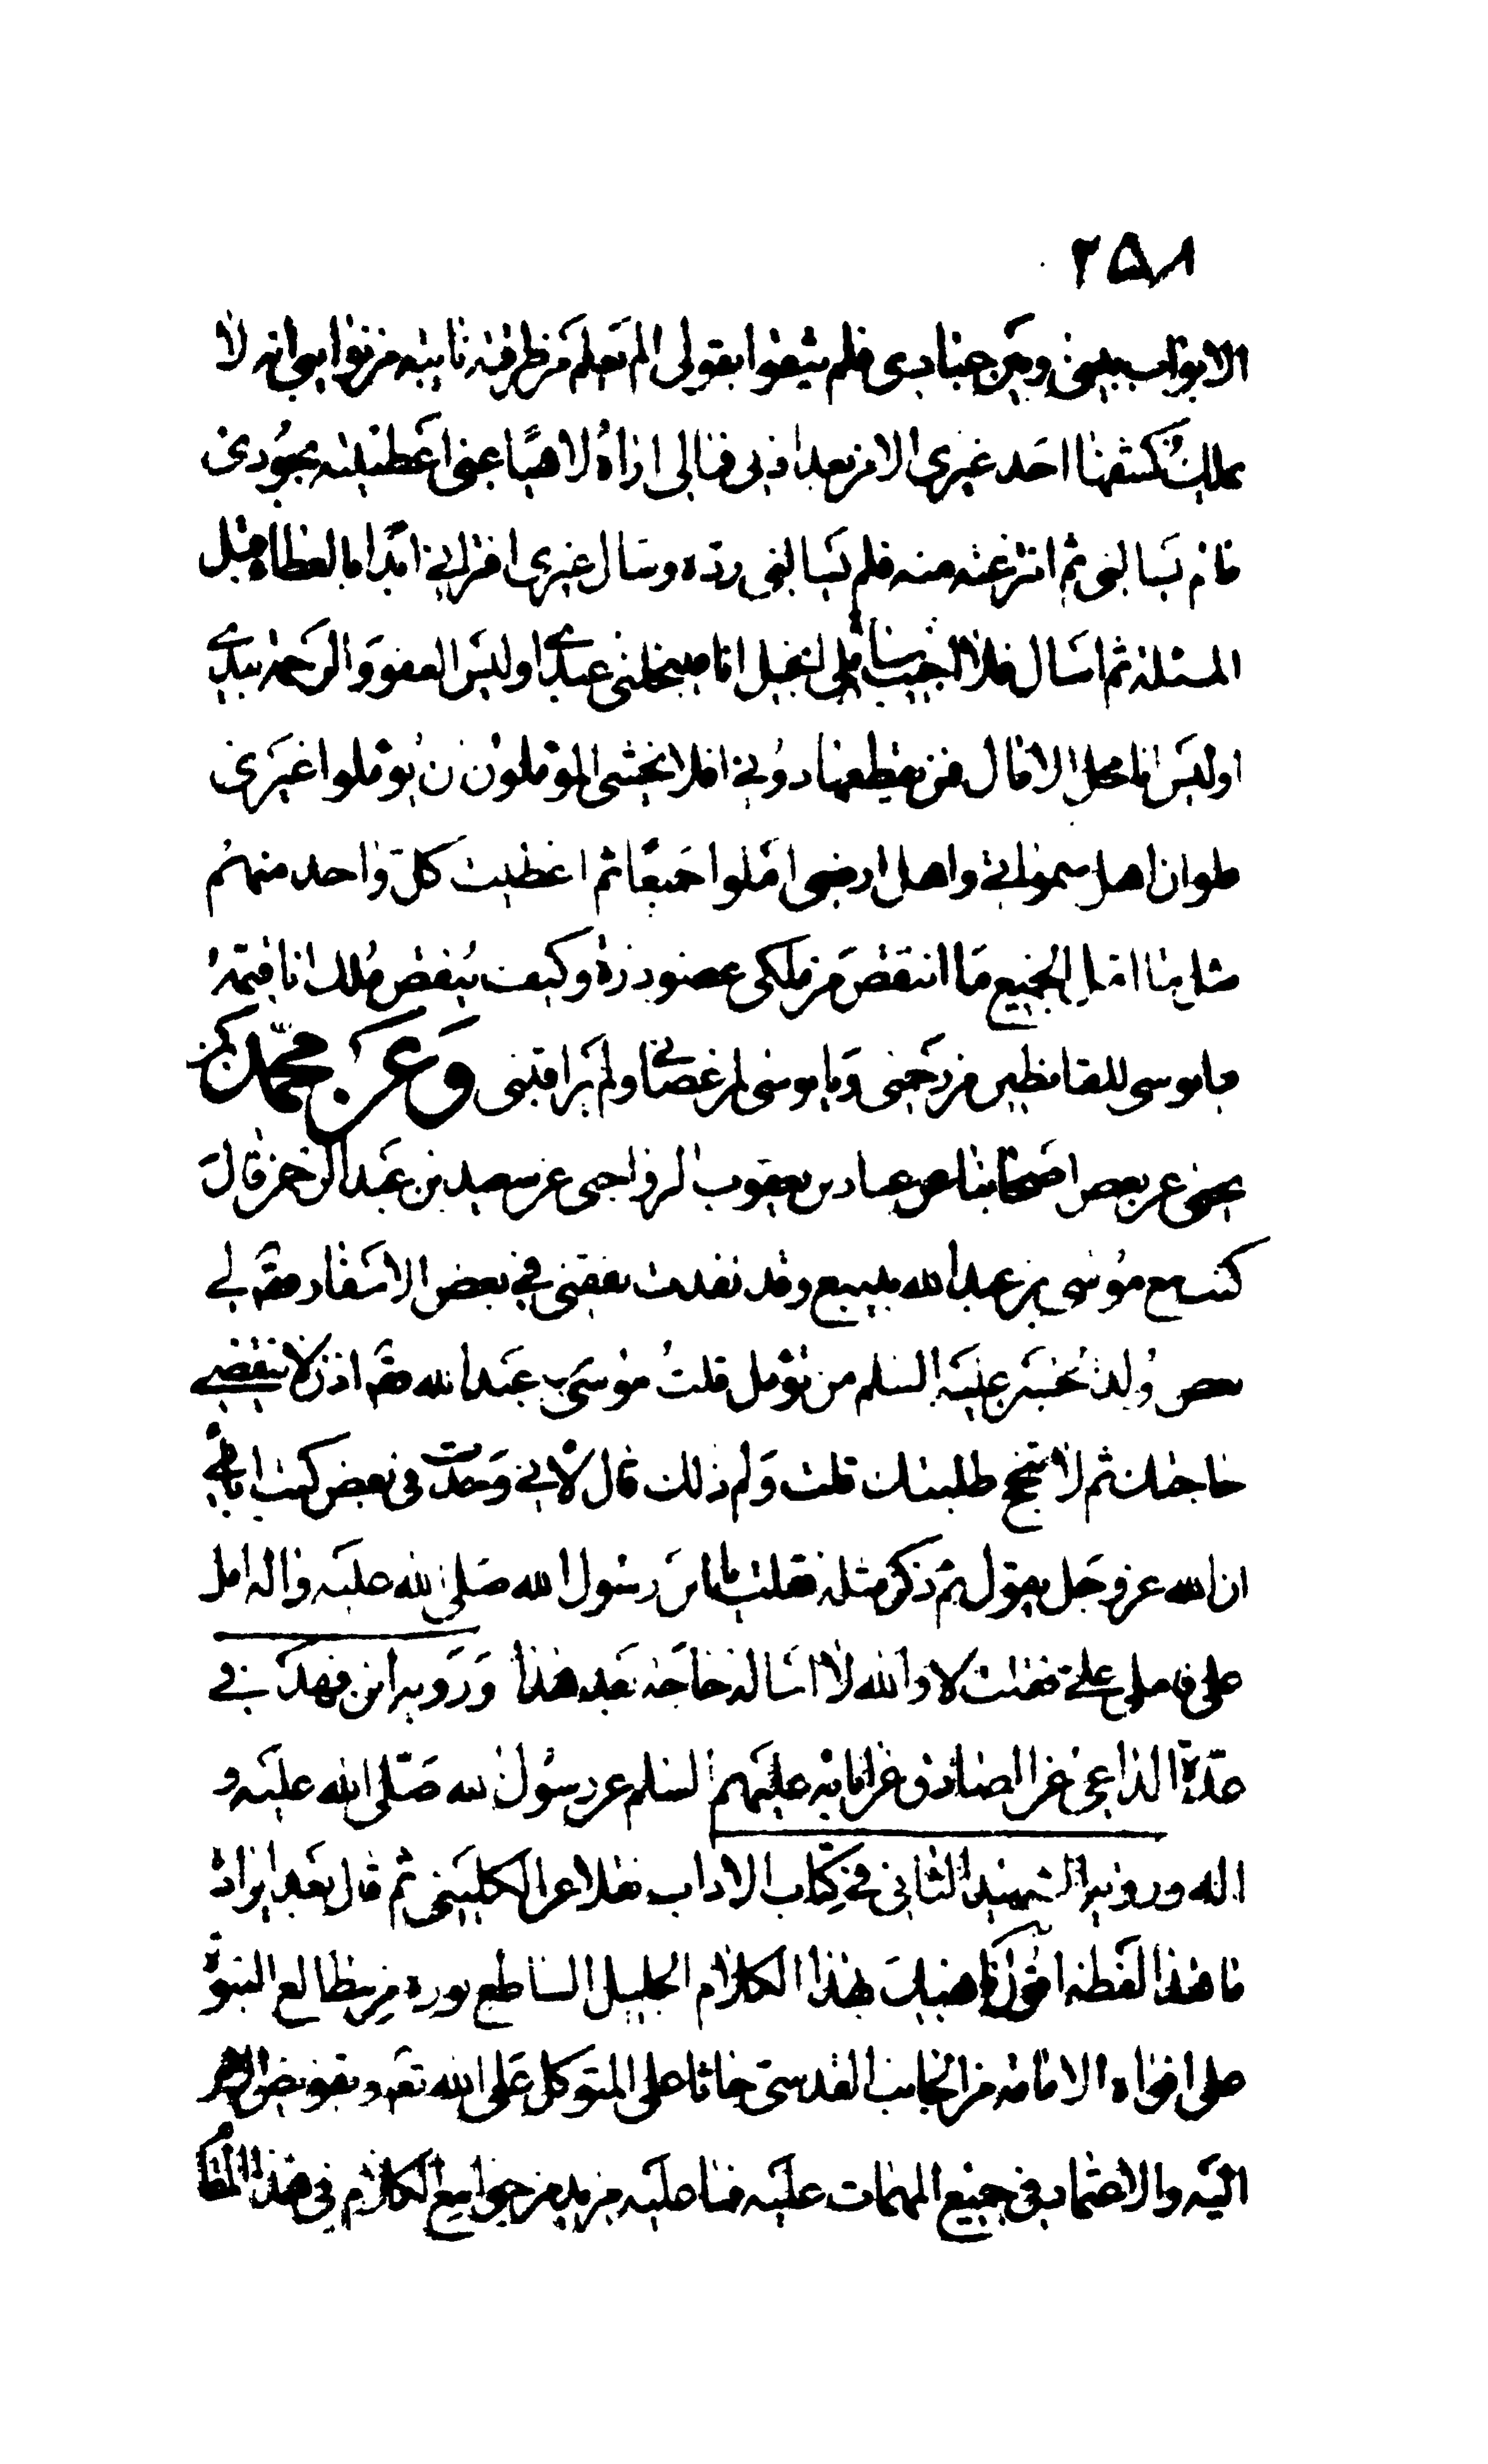 ٢٥٨
الابواب بيني وبين عبادي فلم يثقوا بقولي الم تعلم من طرقته نائبة من نوائبي انه لا
يملك كشفها احد غيري الا من بعد اذني فمالي اراه لاهيا عني اعطيته بجودي
ما لم يسالني ثم انتزعته منه فلم يسالني رده وسال غيري افتراني ابدا بالعطاء قبل
المسئلة ثم اسال فلا اجيب سائلي ابخيل انا فيبخلني عبدي اوليس العفو والرحمة بيدي
اوليس انا محل الامال فمن يقطعها دوني افلا يخشى المؤملون ن يؤملوا غيري
فلو ان اهل سمواتي واهل ارضي املوا جميعا ثم اعطيت كل واحد منهم
مثل ما امل الجميع ما انتقص من ملكي عضو ذرة وكيف ينقص ملك انا قيمه
فيا بوسى للقانطين من رحمتي ويا بوسى لمن عصاني ولم يراقبني وعن محمد بن
يحيى عن بعض اصحابنا عن عباد بن يعقوب الرواجني عن سعيد بن عبد الرحمن قال
كنت مع موسى بن عبد الله بينبع وقد نفدت نفقتي في بعض الاسفار فقال لي
بعض ولد الحسين عليه السلم من تؤمل قلت موسى بن عبد الله فقال اذن لا تقضى
حاجتك ثم لا تنجح طلبتك قلت ولم ذلك قال لاني وجدت في بعض كتب ابائي
ان الله عز وجل يقول ثم ذكر مثله فقلت يا بن رسول الله صلى الله عليه واله امل
علي فاملى علي فقلت لا والله لا اساله حاجة بعد هذا ورويه ابن فهد في
عدة الداعي عن الصادق عن ابائه عليهم السلم عن رسول الله صلى الله عليه و
اله ورويه الشهيد الثاني في كتاب الاداب نقلا عن الكليني ثم قال بعد ايراده
ما هذا لفظه اقول ناهيك بهذا الكلام الجليل الساطع نوره من مطالع النبوة
على افواه الامامة من الجانب القدسي حاثا على المتوكل على الله تعم وتفويض الامر
اليه والاعتماد في جميع المهمات عليه فما عليه مزيد من جوامع الكلام في هذا المقا